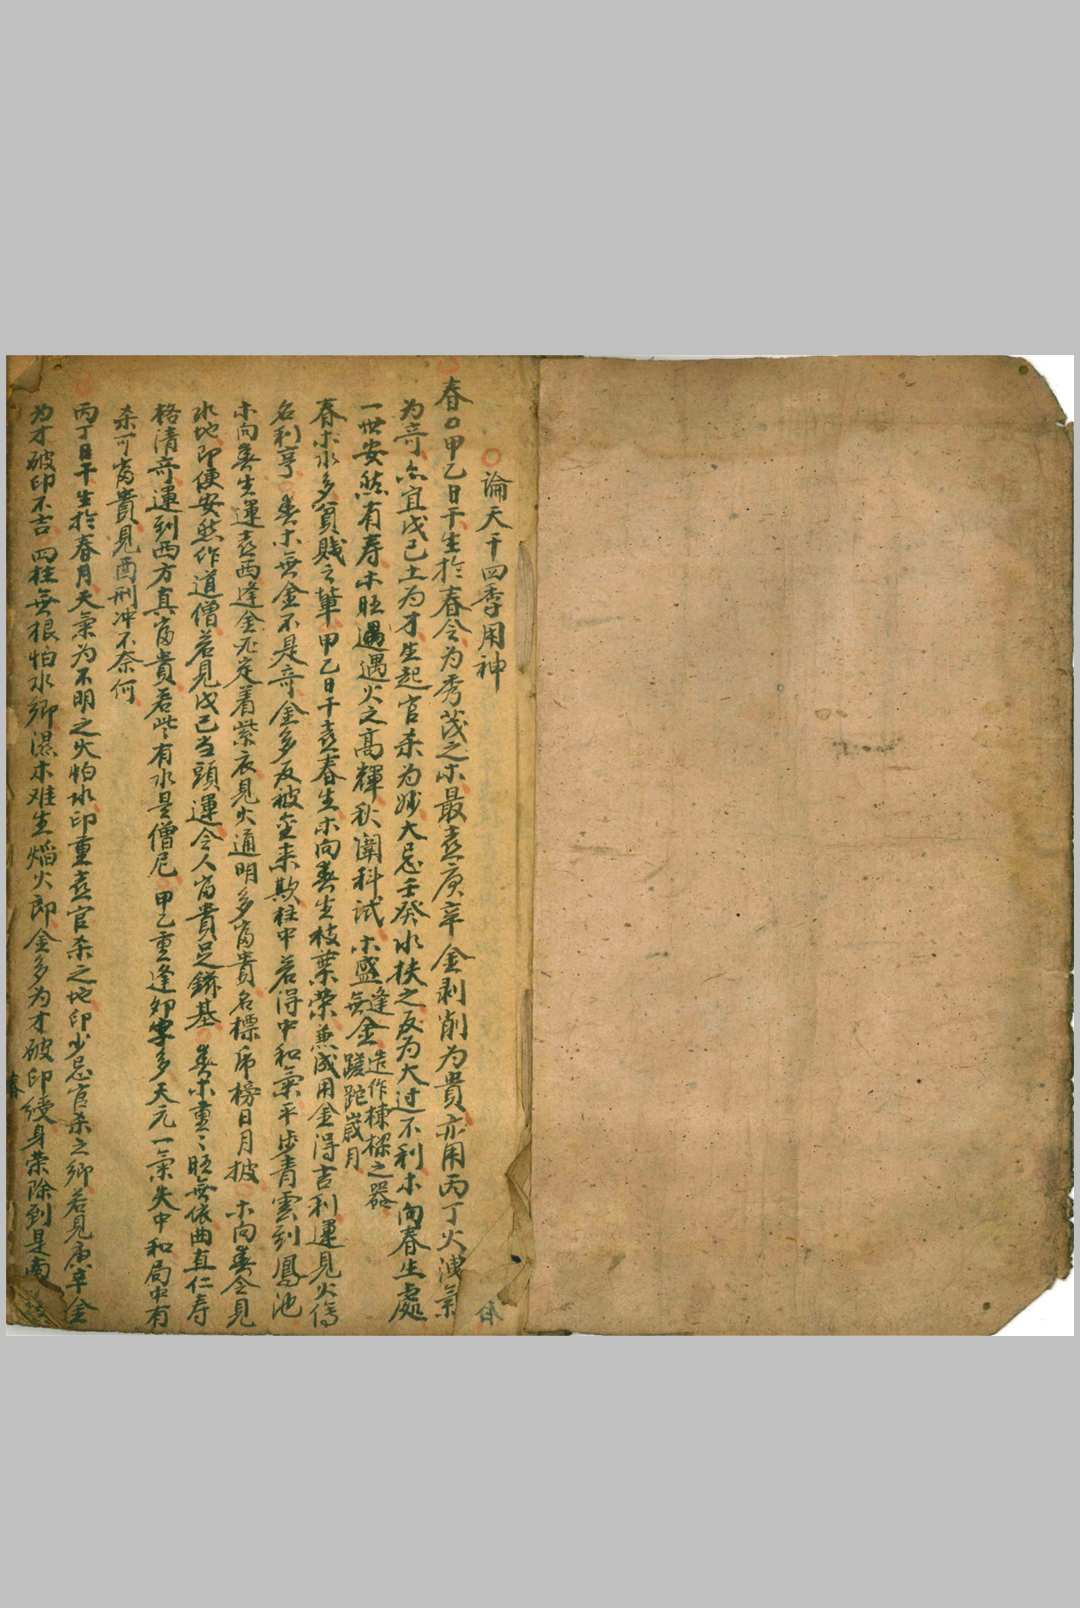 論天干四季用神
春〇甲乙日干生於春令为秀茂之木最喜庚辛金剥削为貴亦用丙丁火洩氣
为奇亦宜戊己土为才生起官杀为妙大忌壬癸水扶之反为大过不利木向春生處
一世安然有寿木旺遇遇火之高輝秋闈科試木盛逢金造作棟樑之器無金蹉跎歲月
春木水多貧贱之輩甲乙日干喜春生木向春生枝葉榮兼成用金得吉利運見火傷
名利亨春木無金不是奇金多反被金来欺柱中若得中和氣平步青雲到鳳池
木向春生運喜西逢金定着紫衣見火通明多富貴名標帝榜日月披木向春令見
水地即便安然作道僧若見戊己当頭運令人富貴足鎡基春木重〻旺無依曲直仁寿
格清奇運到西方真富貴若些有水是僧尼甲乙重逢卯字多天元一氣失中和局中有
杀可富貴見酉刑冲不奈何
丙丁日干生於春月天氣为不明之火怕水印重喜官杀之地印少忌官杀之鄉若見庚辛金
为才破印不吉四柱無根怕水鄉濕木难生焰火郎金多为才破印綬身荣除到是南
春